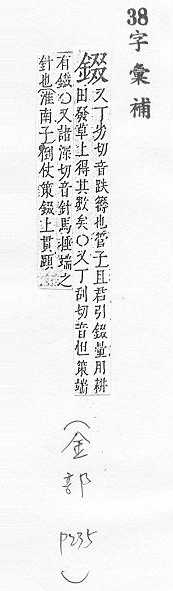 38字彙補
錣 又丁劣切音畷籌也管子且君引錣量用耕
田發草上得其數矣○又丁刮切音但策端
有鐵○又諸深切音針馬捶端之
針也淮南子倒仗策錣上貫頤
(金部 P235)